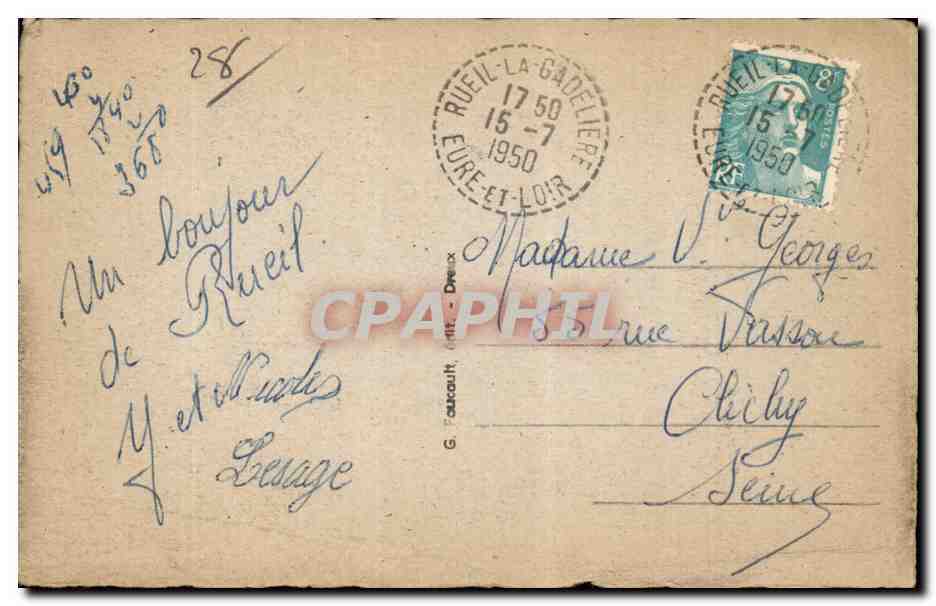 28
RUEIL-LA-GADELIERE
17 50
15 - 7
1950
EURE-ET-LOIR
RUEIL-LA-GADELIERE
17 50
15 - 7
1950
EURE-ET-LOIR
2F
POSTES
RF
Un bonjour
de Rueil
Y. et Nicolas
Lesage
G. Foucault, édit. - Dreux
CPAPHIL
Madame Vve Georges
55 rue
Clichy
Seine